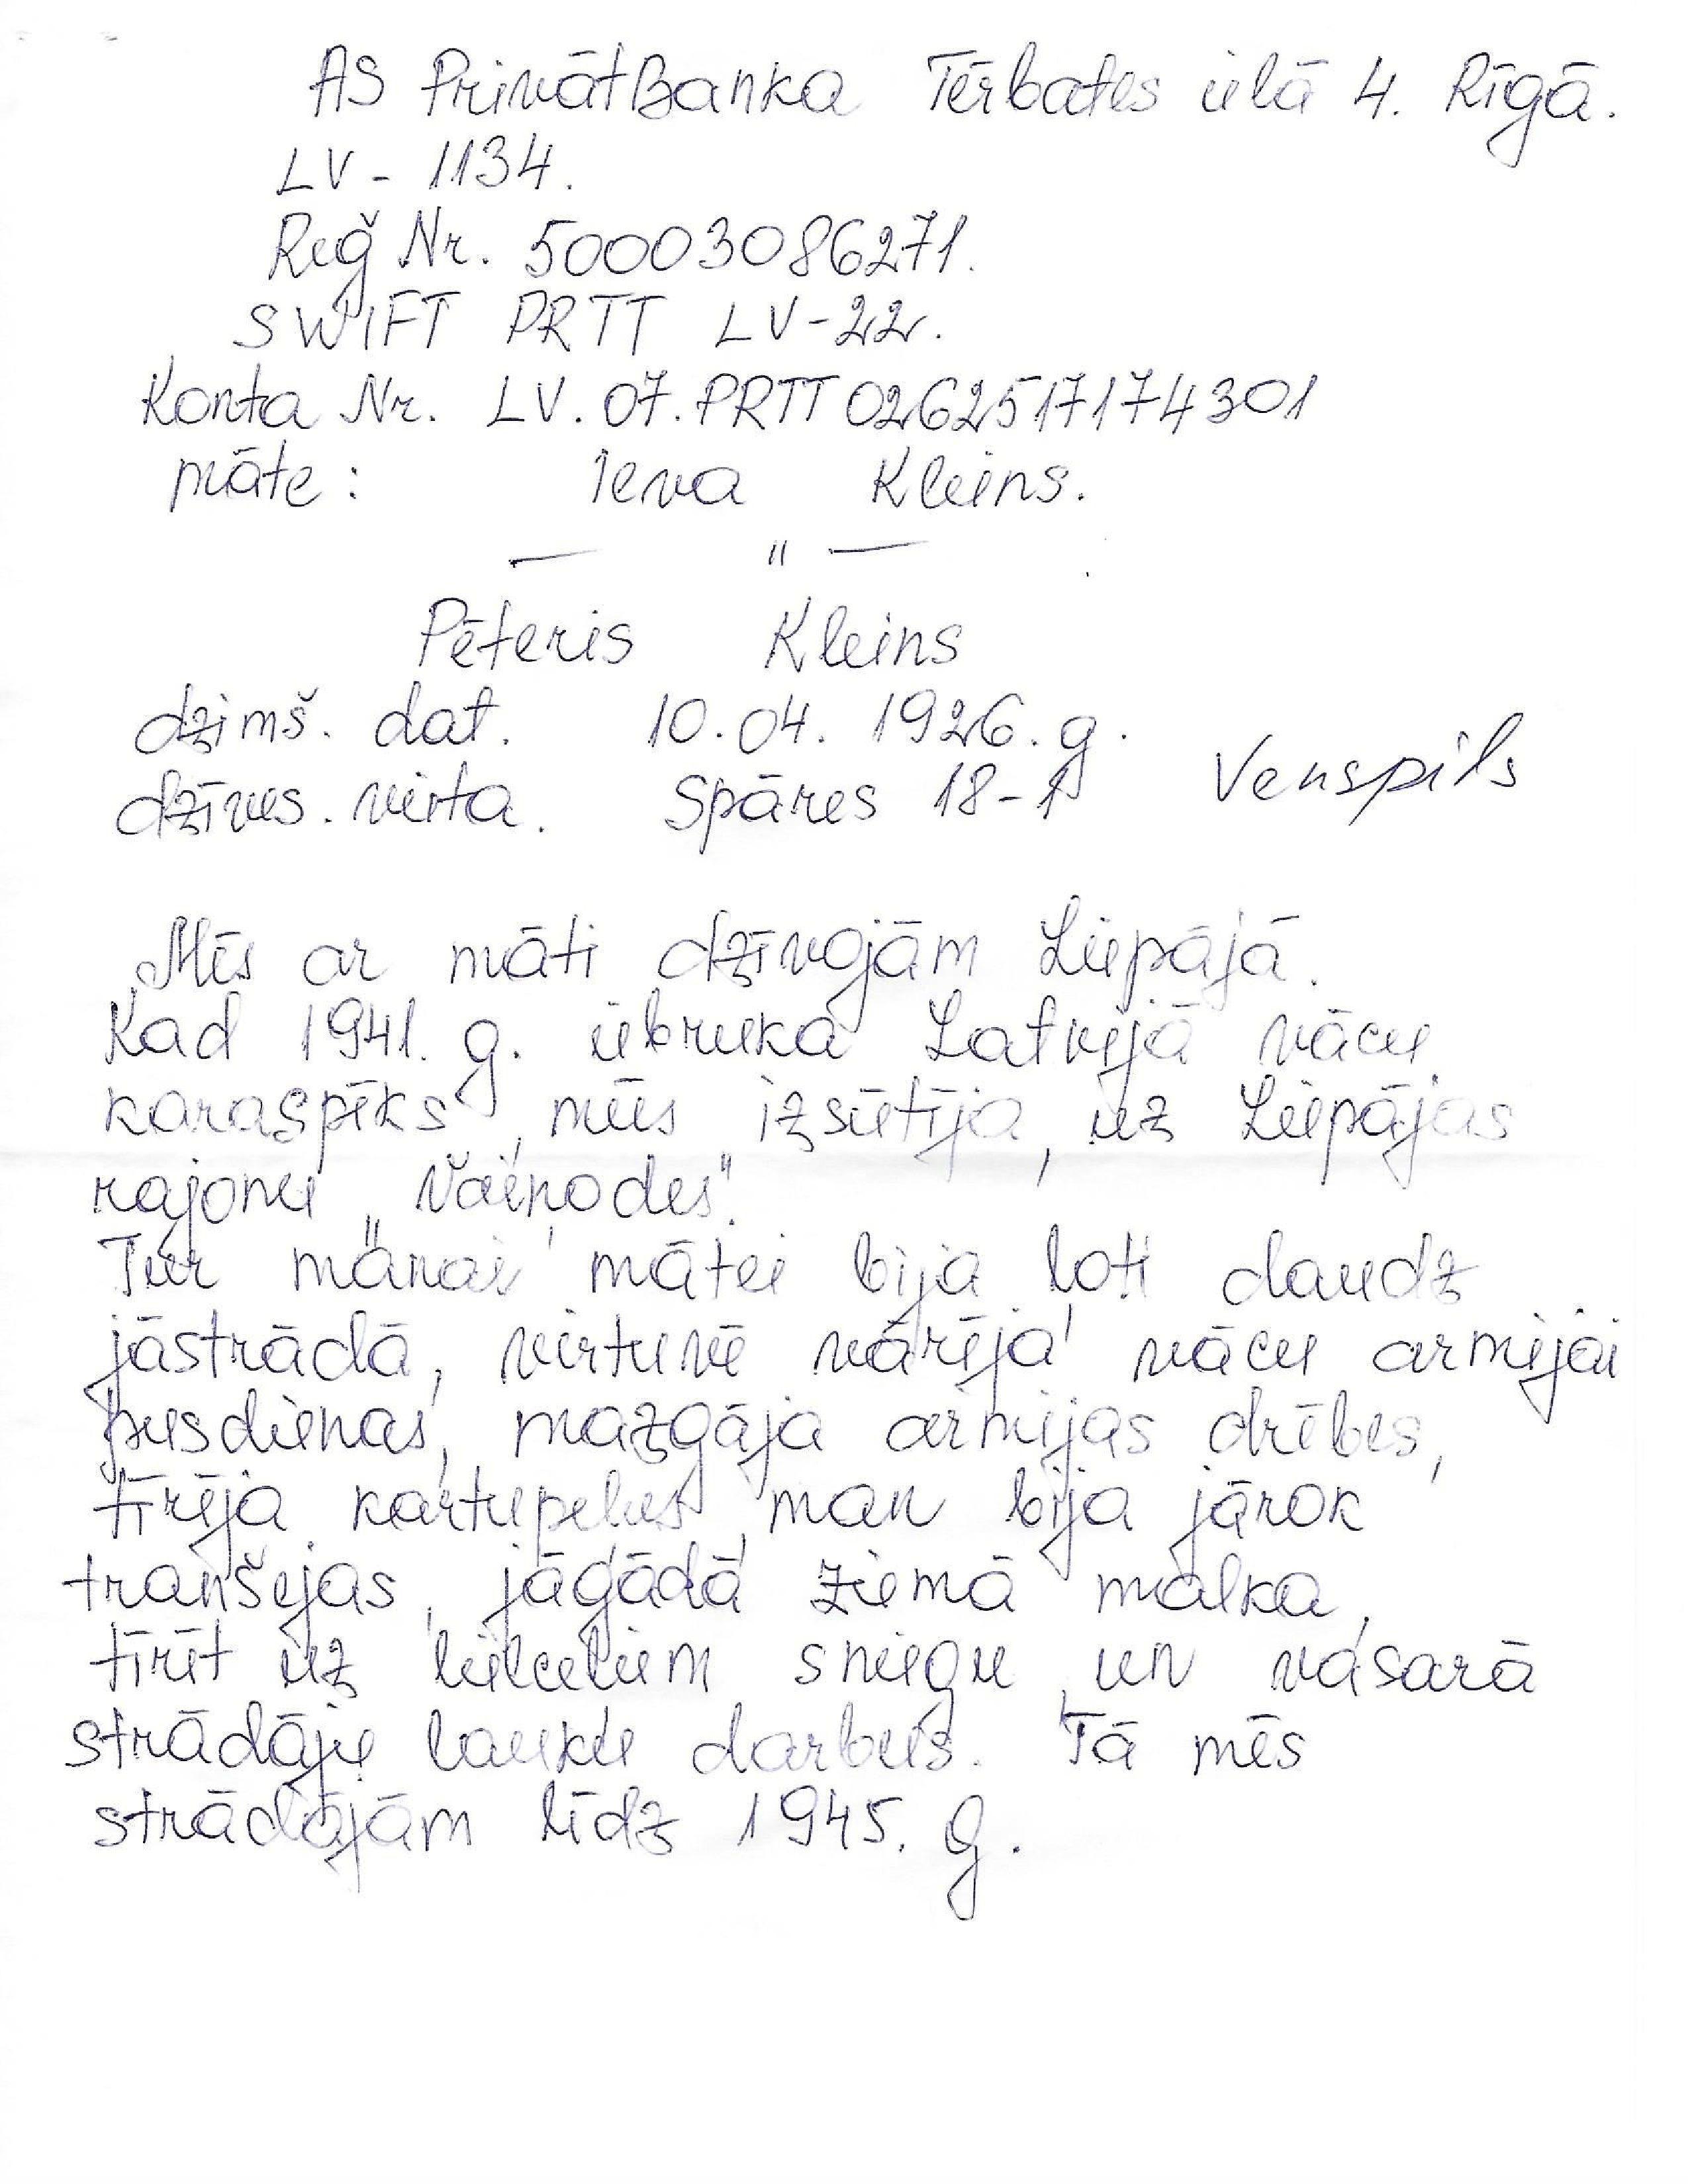 AS PrivātBanka Tērbates ielā 4. Rīgā.
LV - 1134.
Reģ Nr. 50003086271.
SWIFT PRTT LV-22.
Konta Nr. LV.07.PRTT0262517174301
māte: Ieva Kleins.
— " —
Pēteris Kleins
dzimš. dat. 10.04. 1926. g.
dzīves. vieta. Spāres 18-1 Venspils
Mēs ar māti dzīvojām Liepājā.
Kad 1941. g. iebruka Latvijā vācu
karaspēks, mūs izsūtīja, uz Liepājas
rajonu „Vaiņodes".
Tur mānai mātei bija ļoti daudz
jāstrādā, virtuvē vārīja vācu armijai
pusdienas, mazgāja armijas drēbes,
tīrīja kartupeļus, man bija jārok
tranšejas, jāgādā ziemā malka,
tīrīt uz lielceļiem sniegu, un vasarā
strādāju lauku darbus. Tā mēs
strādājām līdz 1945. g.